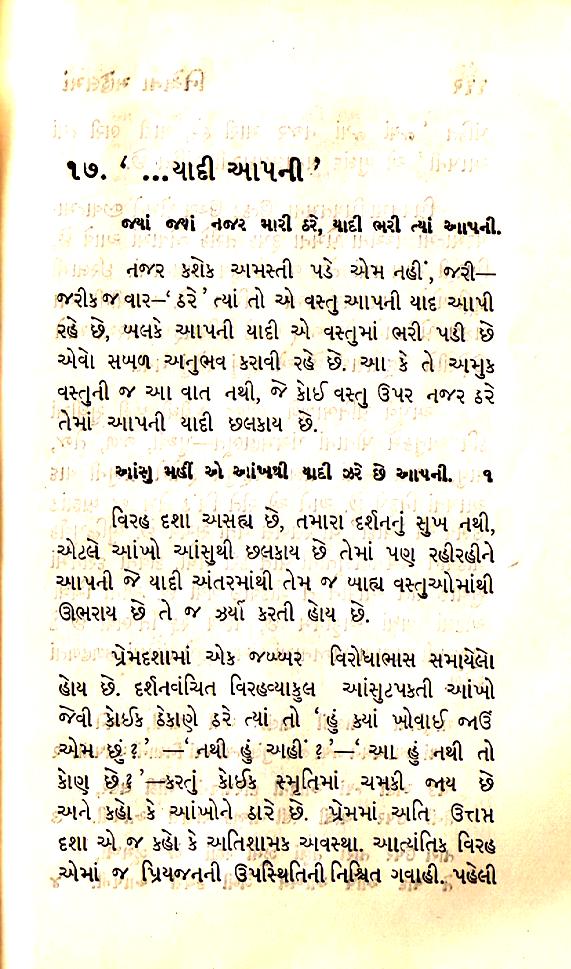 ૧૭. ‘ ...યાદી આપની ’
જ્યાં જ્યાં નજર મારી ઠરે, યાદી ભરી ત્યાં આપની.
નજર કશેક અમસ્તી પડે એમ નહીં, જરી—
જરીક જ વાર–‘ ઠરે ’ ત્યાં તો એ વસ્તુ આપની યાદ આપી
રહે છે, બલકે આપની યાદી એ વસ્તુમાં ભરી પડી છે
એવો સબળ અનુભવ કરાવી રહે છે. આ કે તે અમુક
વસ્તુની જ આ વાત નથી, જે કોઈ વસ્તુ ઉપર નજર ઠરે
તેમાં આપની યાદી છલકાય છે.
આંસુ મહીં એ આંખથી યાદી ઝરે છે આપની. ૧
વિરહ દશા અસહ્ય છે, તમારા દર્શનનું સુખ નથી,
એટલે આંખો આંસુથી છલકાય છે તેમાં પણ રહીરહીને
આપની જે યાદી અંતરમાંથી તેમ જ બાહ્ય વસ્તુઓમાંથી
ઊભરાય છે તે જ ઝર્યા કરતી હોય છે.
પ્રેમદશામાં એક જબ્બર વિરોધાભાસ સમાયેલો
હોય છે. દર્શનવંચિત વિરહવ્યાકુલ આંસુટપકતી આંખો
જેવી કોઈક ઠેકાણે ઠરે ત્યાં તો ‘ હું ક્યાં ખોવાઈ જાઉં
એમ છું? ’ —‘ નથી હું અહીં ? ’—‘ આ હું નથી તો
કોણ છે? ’—કરતું કોઈક સ્મૃતિમાં ચમકી જાય છે
અને કહો કે આંખોને ઠારે છે. પ્રેમમાં અતિ ઉત્તપ્ત
દશા એ જ કહો કે અતિશામક અવસ્થા. આત્યંતિક વિરહ
એમાં જ પ્રિયજનની ઉપસ્થિતિની નિશ્ચિત ગવાહી. પહેલી